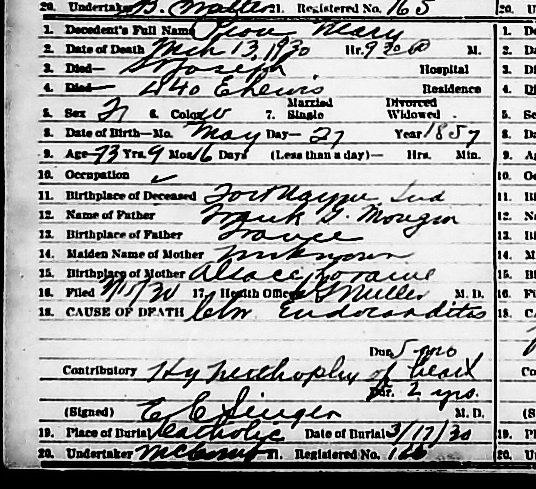 20. Undertaker G. Walter 21. Registered No. 165 20. Un
1. Decedent's Full Name Mary 1. De
2. Date of Death Mch 13, 1930 Hr. 9 30 M. 2. Da
3. Died— St Joseph Hospital 3. Di
4. Died— 440 E Lewis Residence 4. Di
Married Divorced
5. Sex F 6. Color W 7. Single Widowed 5. Se
8. Date of Birth—Mo. May Day— 27 Year 1857 8. Da
9. Age 73 Yrs. 9 Mos 16 Days (Less than a day)— Hrs. Min. 9. Ag
10. Occupation ✓ 10. Oc
11. Birthplace of Deceased Fort Wayne Ind 11. Bi
12. Name of Father Frank G. Mongin 12. Na
13. Birthplace of Father France 13. Bi
14. Maiden Name of Mother Unknown 14. M
15. Birthplace of Mother Alsace Loraine 15. Bi
16. Filed 3/15/30 17. Health Officer Muller M. D. 16. Fi
18. CAUSE OF DEATH Chr Endocarditis 18. C
Dur. 5 mo
Contributory Hyperthophy of heart Co
Dur. 2 yrs.
(Signed) E. C. Singer M. D. (S
19. Place of Burial Catholic Date of Burial 3/17/30 19. Pl
20. Undertaker 21. Registered No. 166 20. Un